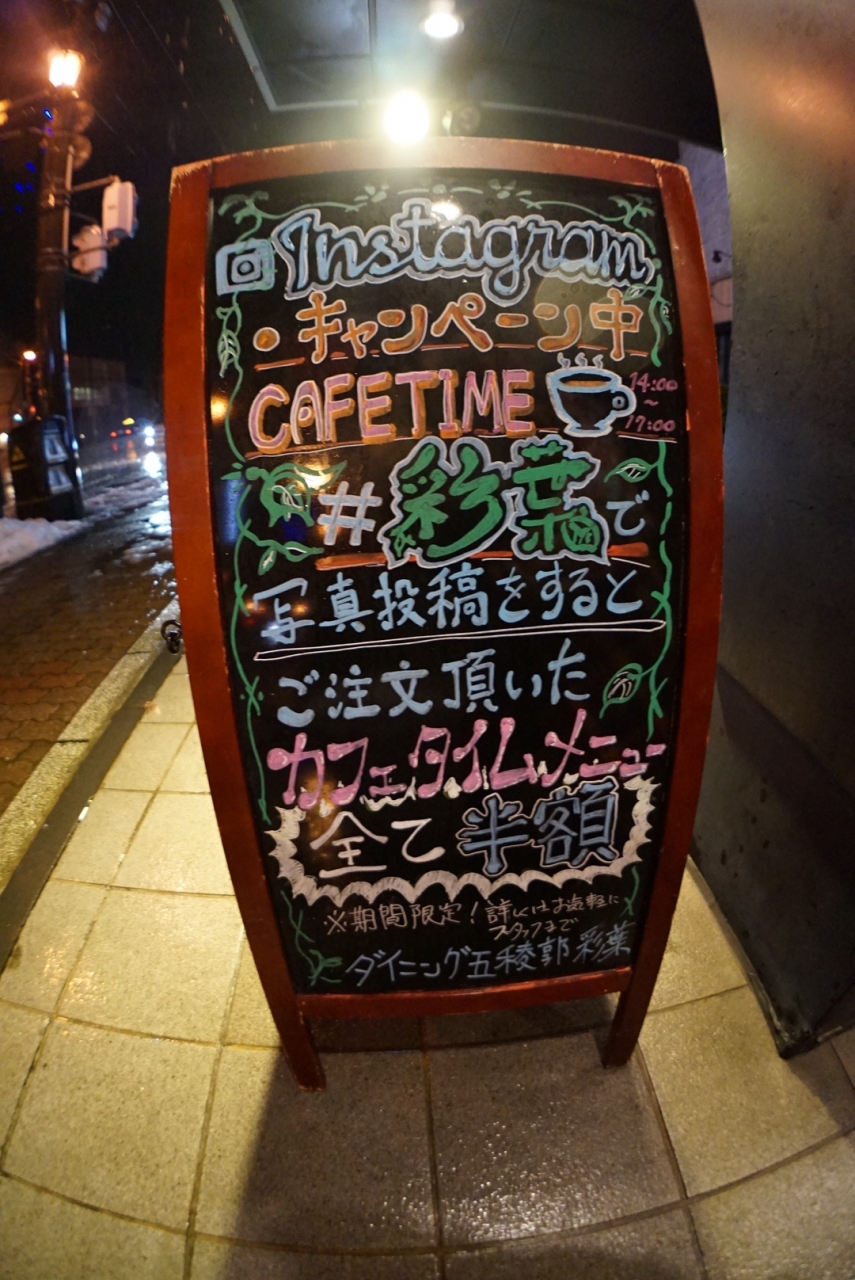 Instagram
・キャンペーン中
CAFE TIME 14:00~17:00
#彩葉で
写真投稿をすると
ご注文頂いた
カフェタイムメニュー
全て半額
※期間限定!詳しくはお気軽に
スタッフまで
ダイニング五稜郭彩葉